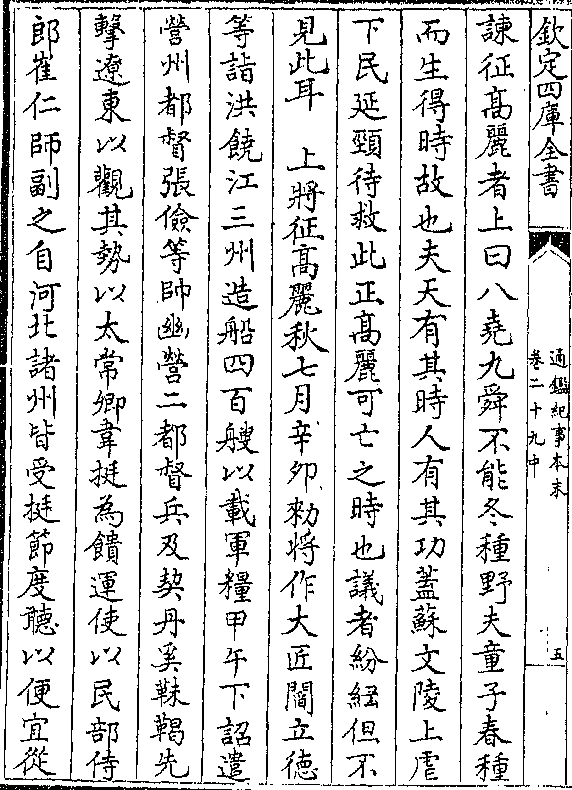 欽定四庫全書
通鑑紀事本末
卷二十九中
五
諫征高麗者上曰八堯九舜不能冬種野夫童子春種
而生得時故也夫天有其時人有其功蓋蘇文陵上虐
下民延頸待救此正高麗可亡之時也議者紛紜但不
見此耳　上將征高麗秋七月辛夘勑將作大匠閻立德
等詣洪饒江三州造船四百艘以載軍糧甲午下詔遣
營州都督張儉等帥幽營二都督兵及契丹奚靺鞨先
擊遼東以觀其勢以太常卿韋挺為饋運使以民部侍
郎崔仁師副之自河北諸州皆受挺節度聽以便宜從